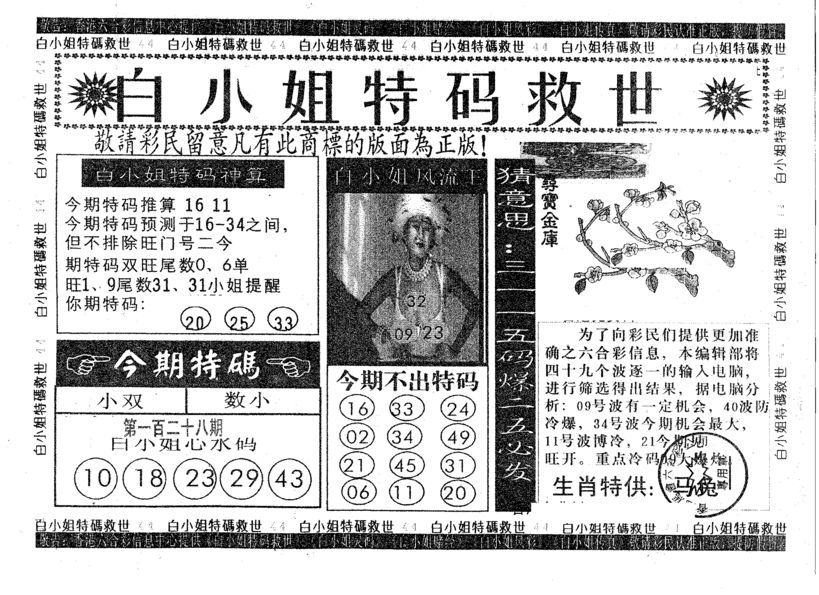 白小姐特碼救世 44 白小姐特碼救世 44 白小姐特碼救世 44 白小姐特碼救世 44 白小姐特碼救世 44 白小姐特碼救世
白小姐特码救世
敬請彩民留意凡有此商標的版面為正版!
白小姐特码神算
今期特码推算 16 11
今期特码预测于16-34之间,
但不排除旺门号二今
期特码双旺尾数0、6单
旺1、9尾数31、31小姐提醒
你期特码:
20 25 33
今期特碼
小双 数小
第一百二十八期
白小姐心水码
10 18 23 29 43
白小姐风流王
32
09 23
今期不出特码
16 33 24
02 34 49
21 45 31
06 11 20
猜意思:三一一五码爆二五必发
尊寶金庫
为了向彩民们提供更加准
确之六合彩信息,本编辑部将
四十九个波逐一的输入电脑,
进行筛选得出结果,据电脑分
析:09号波有一定机会,40波防
冷爆,34号波今期机会最大,
11号波博冷,21今期
旺开。重点冷码09大爆炸
生肖特供:马兔
專用章
白小姐特碼救世 44 白小姐特碼救世 44 白小姐特碼救世 44 白小姐特碼救世 44 白小姐特碼救世 44 白小姐特碼救世
白小姐特碼救世 44 白小姐特碼救世 44 白小姐特碼救世 44 白小姐特碼救世
白小姐特碼救世 44 白小姐特碼救世 44 白小姐特碼救世